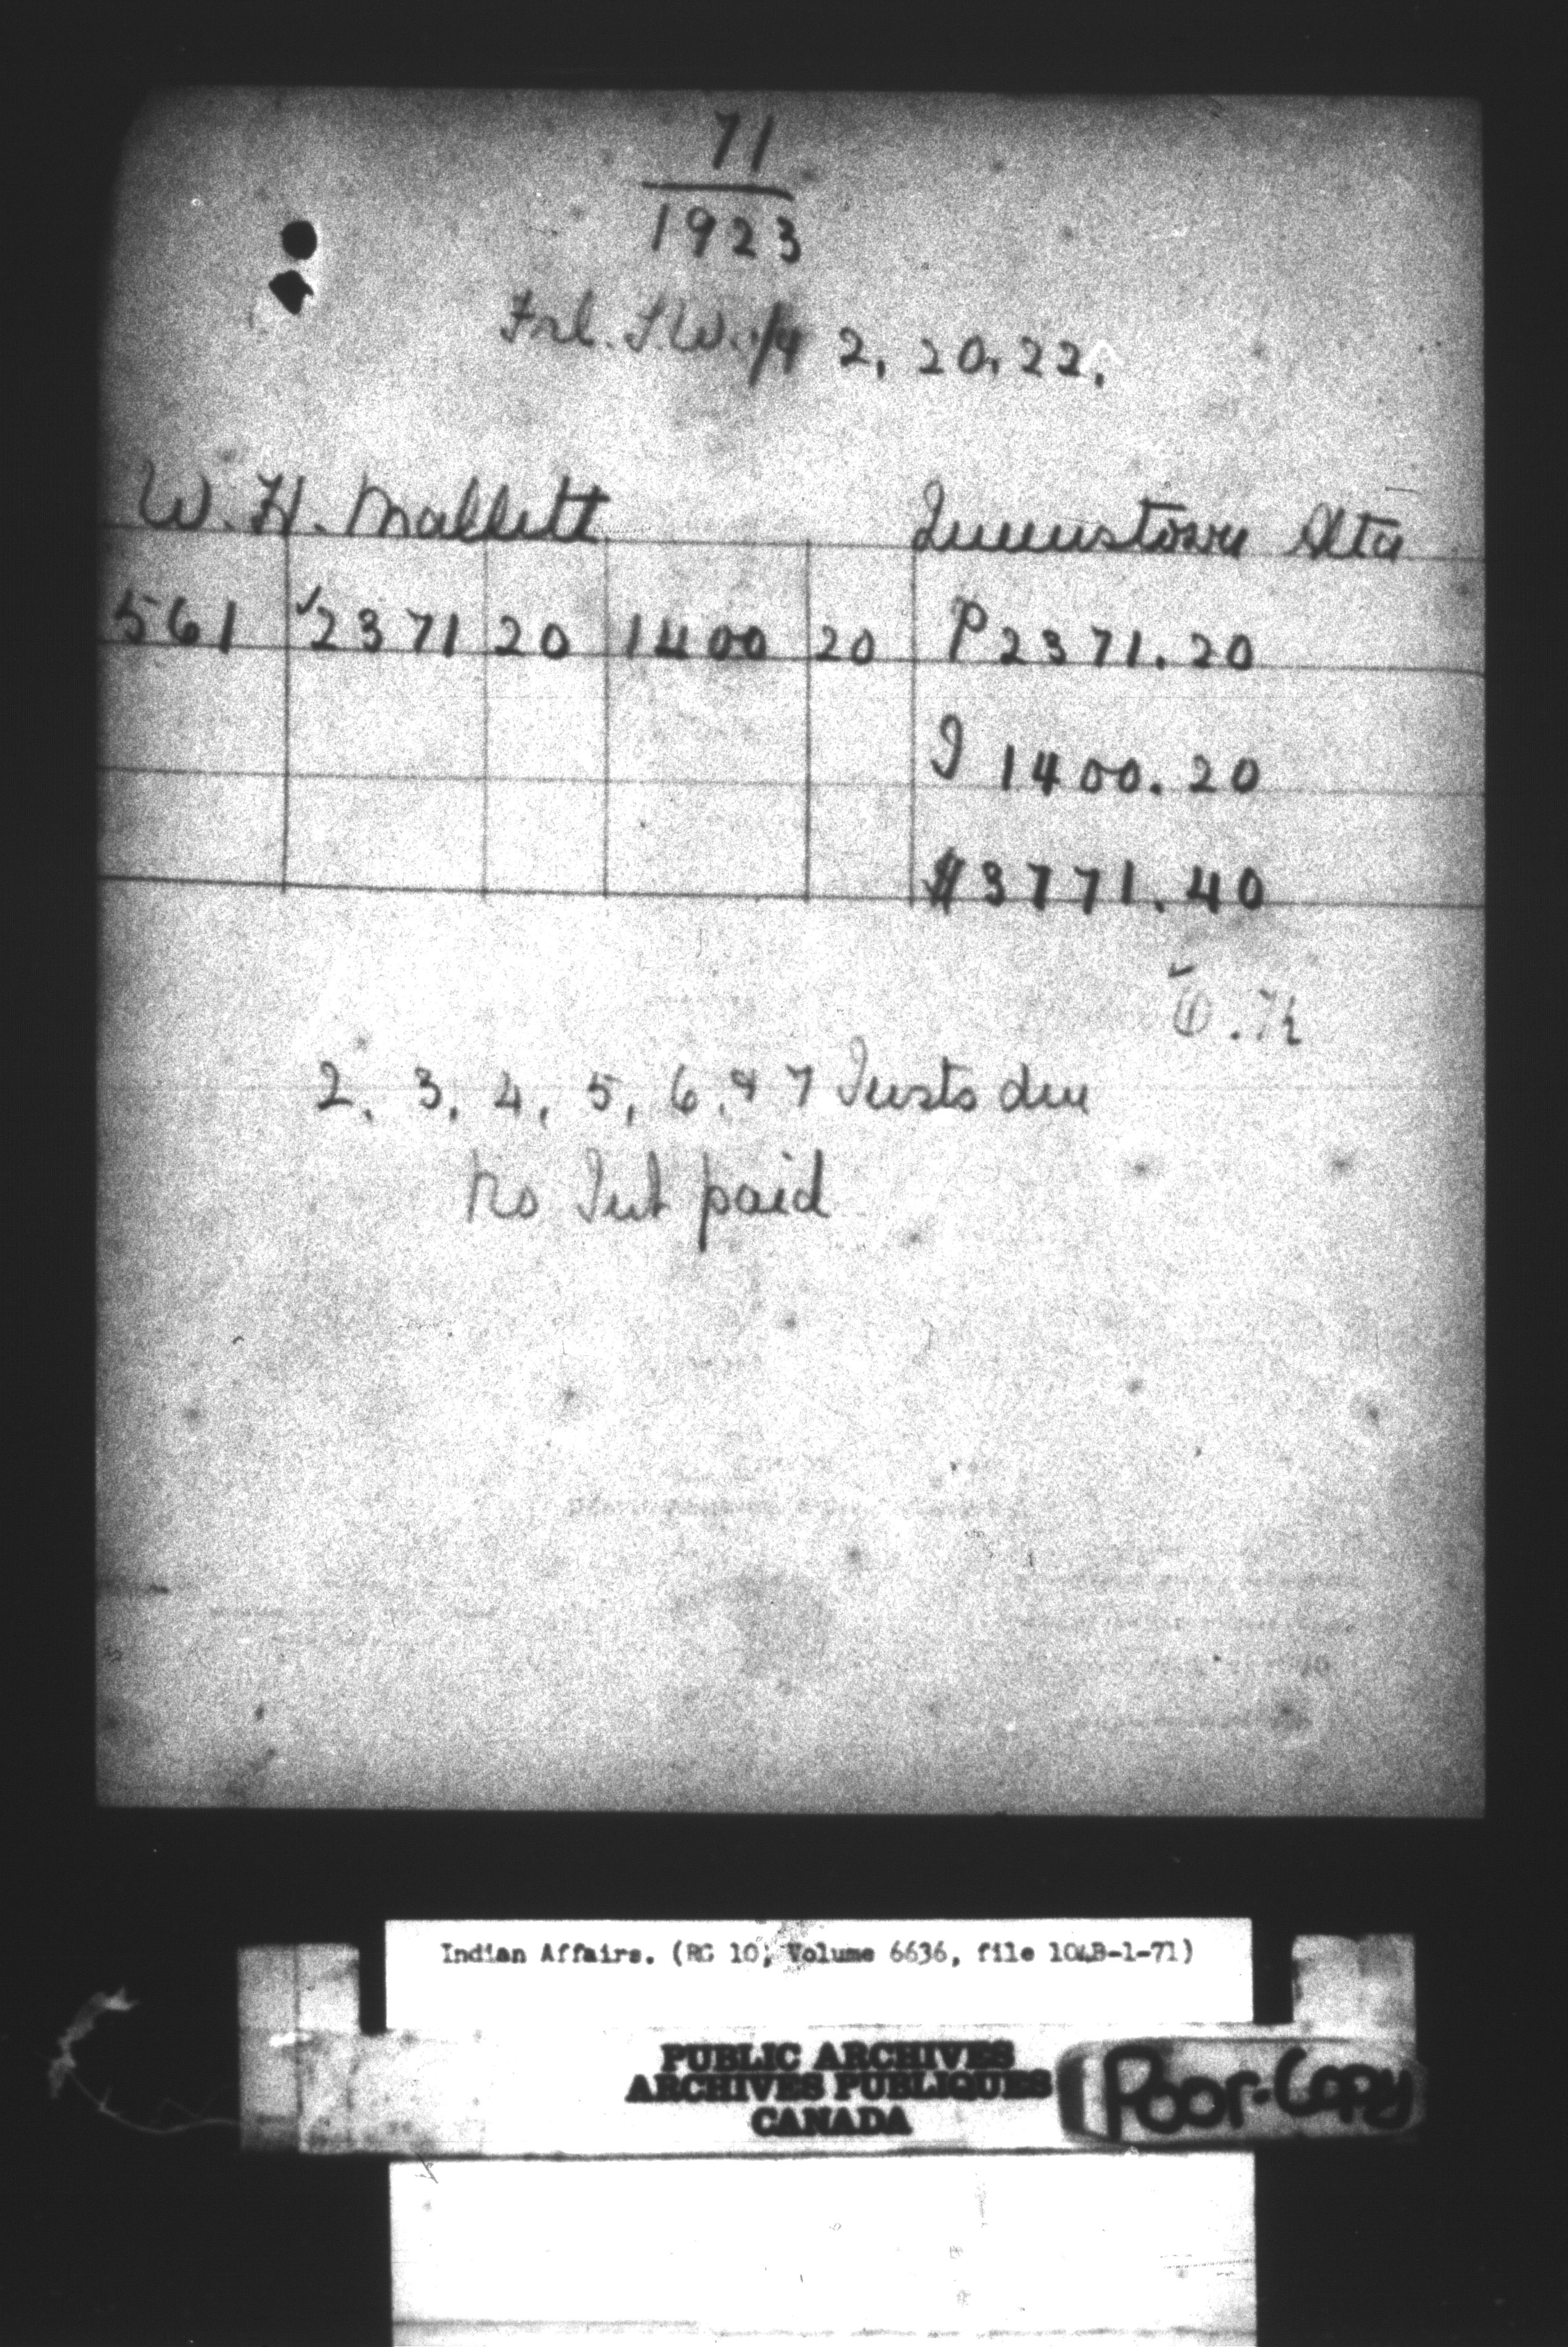 71
1923
Frl. S.W. 1/4 2, 20, 22,
W. H. Mallett Queenstown Alta
561 ✓2371 20 1400 20 P 2371.20
I 1400.20
$3771.40
O.K
2, 3, 4, 5, 6, & 7 Insts due
No Int paid
Indian Affairs. (RG 10, Volume 6636, file 104B-1-71)
PUBLIC ARCHIVES
ARCHIVES PUBLIQUES
CANADA
Poor-Copy